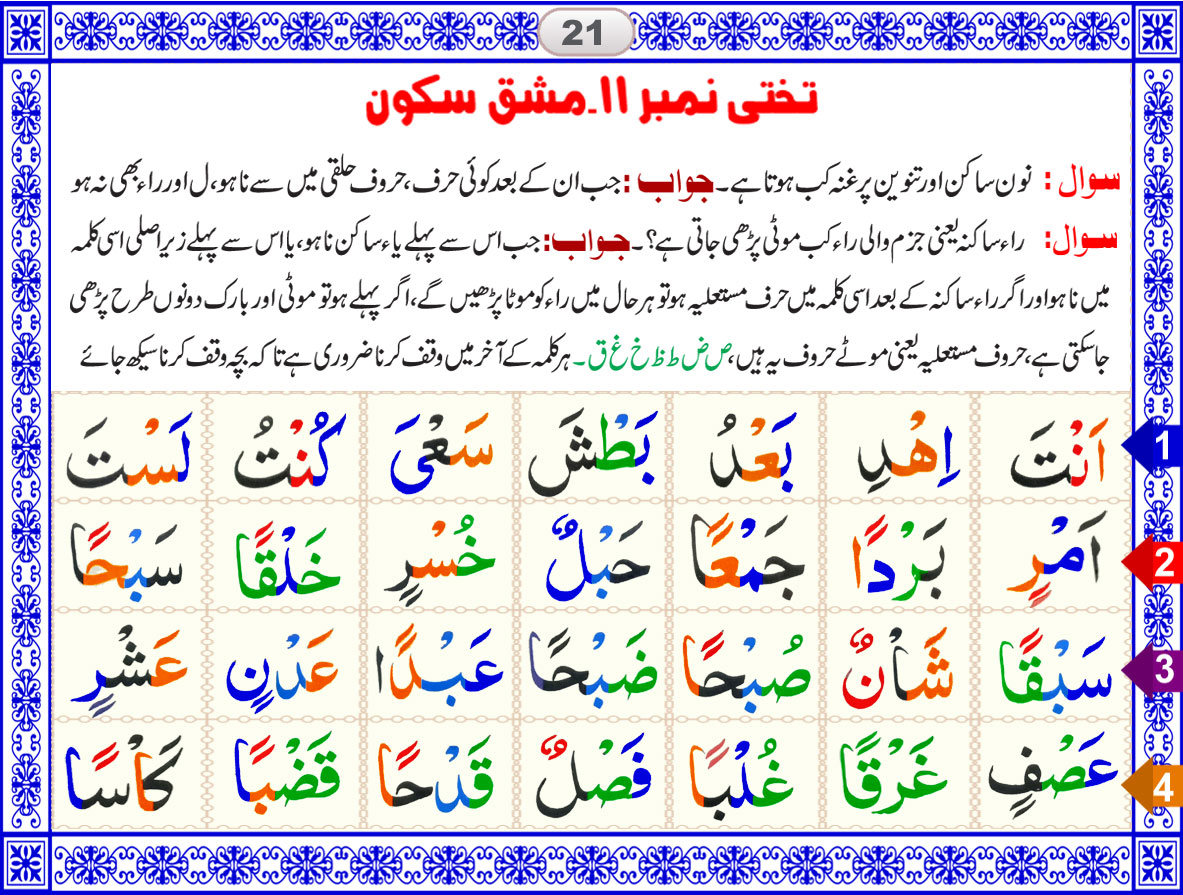 21
تختی نمبر ۱۱۔مشق سکون
سوال : نون ساکن اور تنوین پر غنہ کب ہوتا ہے۔ جواب : جب ان کے بعد کوئی حرف، حروف حلقی میں سے نا ہو، ل اور راء بھی نہ ہو
سوال: راء ساکنہ یعنی جزم والی راء کب موٹی پڑھی جاتی ہے؟۔ جواب: جب اس سے پہلے یاء ساکن نا ہو، یا اس سے پہلے زیر اصلی اسی کلمہ
میں نا ہو اور اگر راء ساکنہ کے بعد اسی کلمہ میں حرف مستعلیہ ہو تو ہر حال میں راء کو موٹا پڑھیں گے، اگر پہلے ہو تو موٹی اور بارک دونوں طرح پڑھی
جاسکتی ہے، حروف مستعلیہ یعنی موٹے حروف یہ ہیں، ص ض ط ظ خ غ ق ۔ ہر کلمہ کے آخر میں وقف کرنا ضروری ہے تا کہ بچہ وقف کرنا سیکھ جائے
1 اَنْتَ اِهْدِ بَعْدُ بَطْشَ سَعْیَ كُنْتُ لَسْتَ
2 اَمْرٍ بَرْدًا جَمْعًا حَبْلٌ خُسْرٍ خَلْقًا سَبْحًا
3 سَبْقًا شَأْنٌ صُبْحًا ضَبْحًا عَبْدًا عَدْنٍ عَشْرٍ
4 عَصْفٍ غَرْقًا غُلْبًا فَصْلٌ قَدْحًا قَضْبًا كَاْسًا